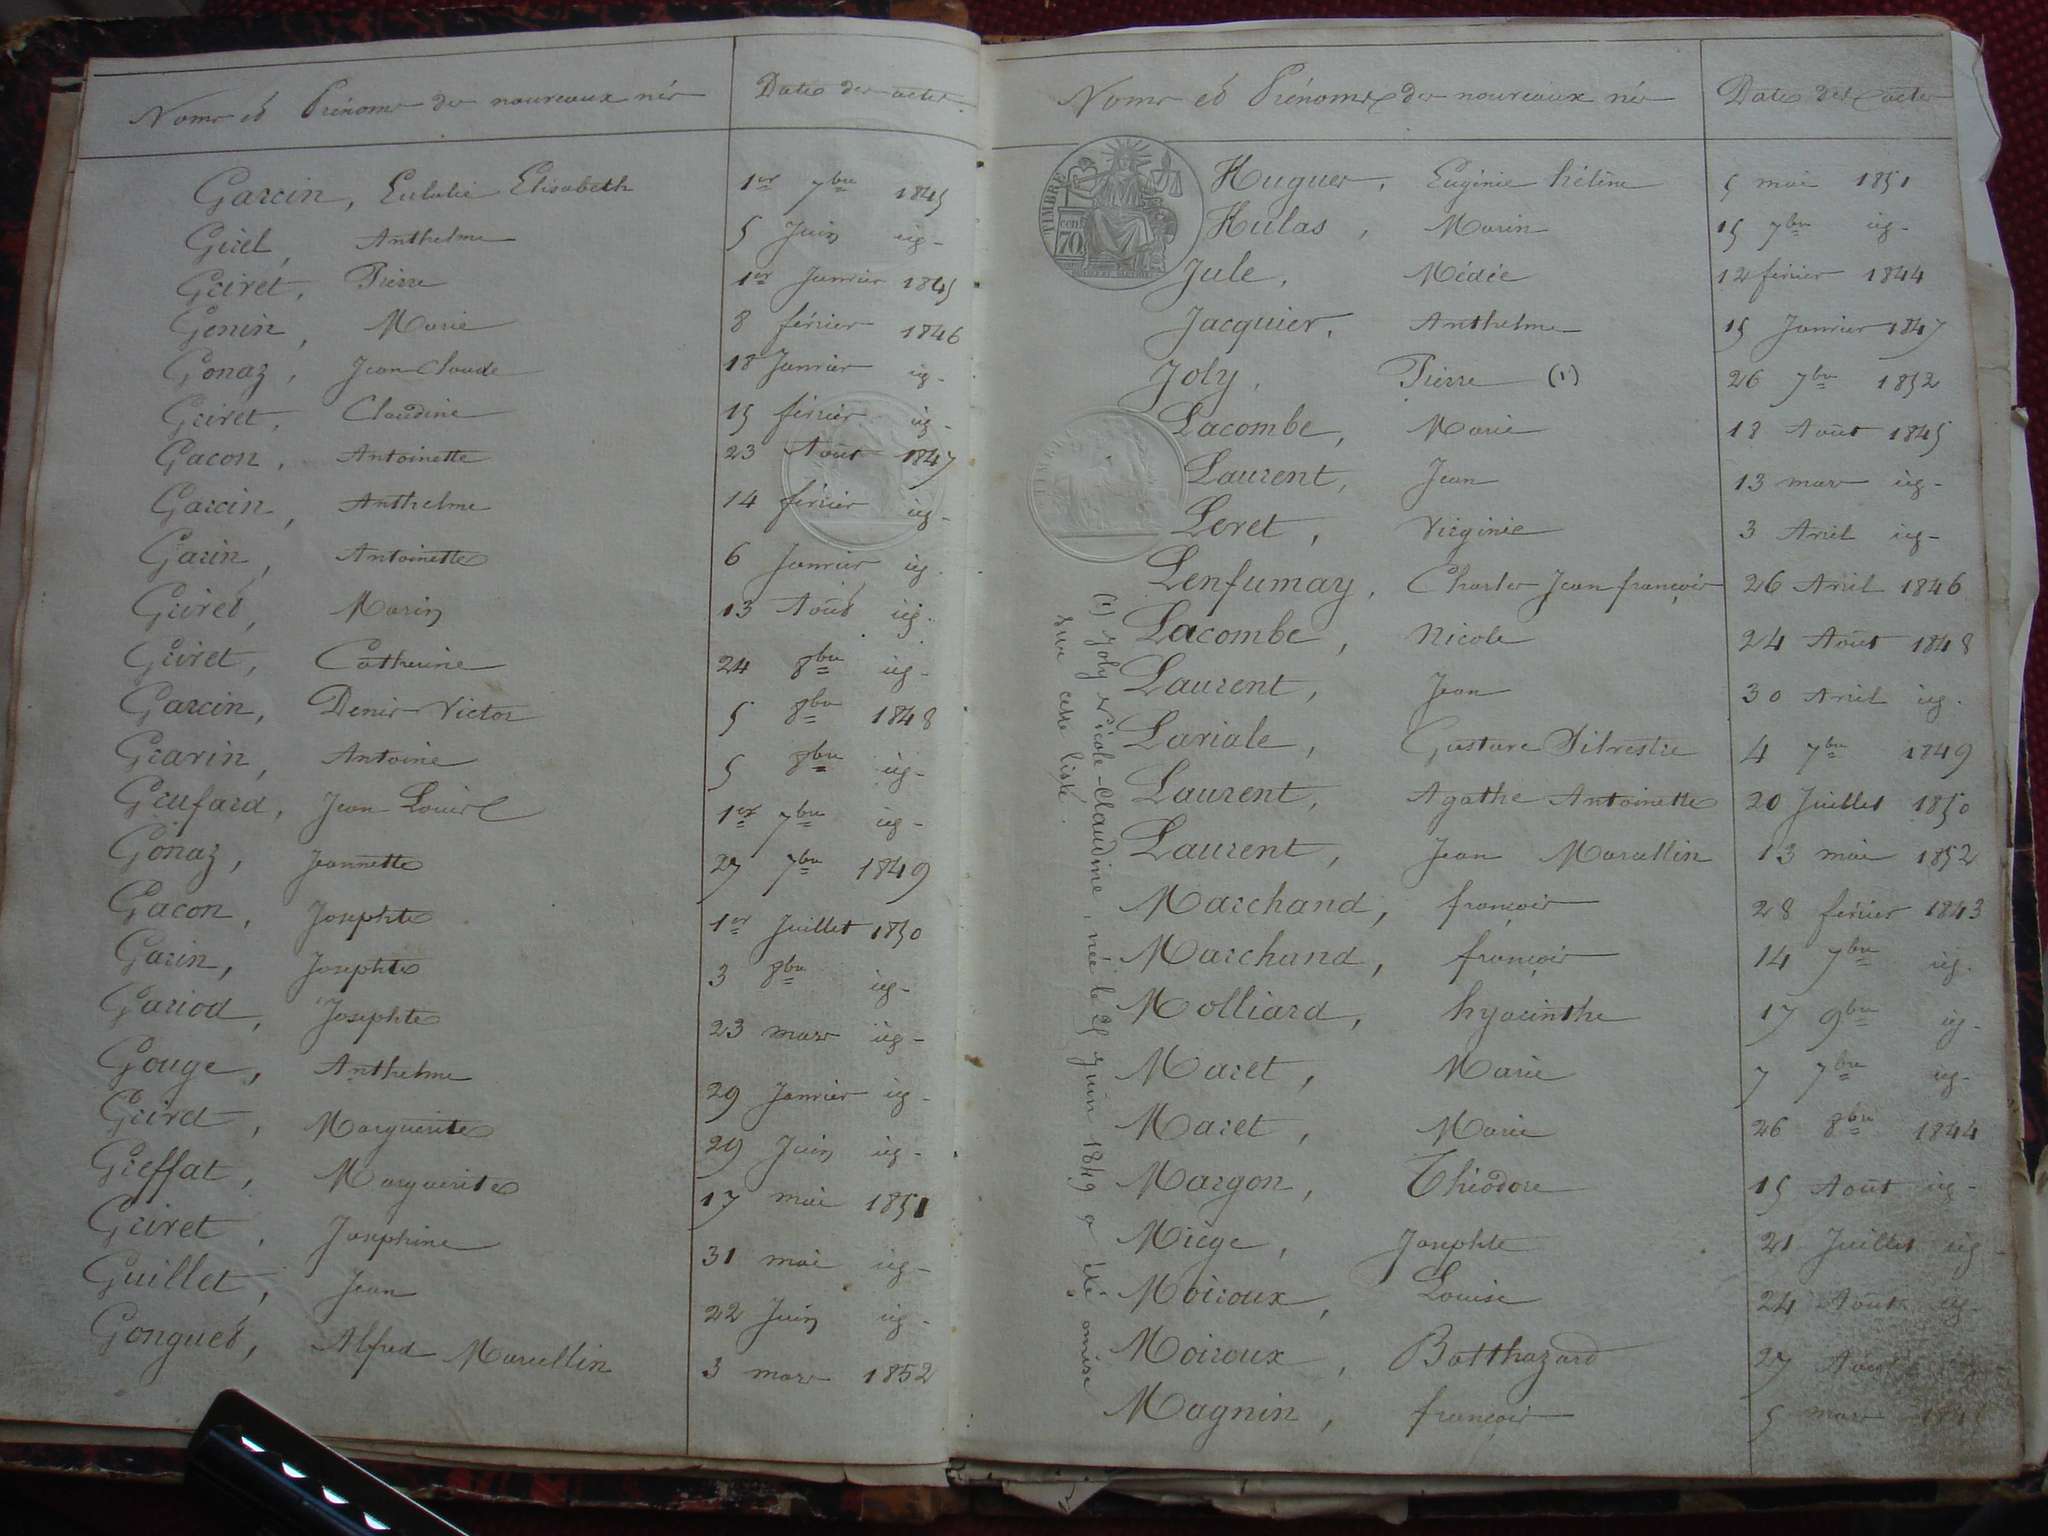 Noms et Prénoms des nouveaux nés Date des actes
Garcin, Eulalie Elisabeth 1er 7bre 1845
Girel, Anthelme 5 Juin id-
Griret, Pierre 1er Janvier 1845
Gonin, Marie 8 février 1846
Gonaz, Jean Claude 18 Janvier id-
Griret, Claudine 15 février id-
Gacon, Antoinette 23 Août 1847
Garcin, Anthelme 14 février id-
Garin, Antoinette 6 Janvier id-
Griret, Marin 13 Août id-
Griret, Catherine 24 8bre id-
Garcin, Denis Victor 5 8bre 1848
Garin, Antoine 5 8bre id-
Grufard, Jean Louis 1er 7bre id-
Gonaz, Jeannette 27 7bre 1849
Gacon, Josephte 1er Juillet 1850
Garin, Josephte 3 8bre id-
Gariod, Josephte 23 mars id-
Gouge, Anthelme 29 Janvier id-
Griret, Marguerite 29 Juin id-
Greffat, Marguerite 17 mai 1851
Griret, Josephine 31 mai id-
Guillet, Jean 22 Juin id-
Gonguet, Alfred Marcellin 3 mars 1852
Noms et Prénoms des nouveaux nés Date des actes
TIMBRE
70 cent
Hugues, Eugénie hélène 5 mai 1851
Hulas, Marin 15 7bre id-
Jule, Médée 12 février 1844
Jacquier, Anthelme 15 Janvier 1847
Joly, Pierre (1) 26 7bre 1852
Lacombe, Marie 18 Août 1845
Laurent, Jean 13 mars id-
Loret, Virginie 3 Avril id-
Lenfumay, Charles Jean françois 26 Avril 1846
Lacombe, Nicole 24 Août 1848
Laurent, Jean 30 Avril id-
Lariale, Gustave Silvestre 4 7bre 1849
Laurent, Agathe Antoinette 20 Juillet 1850
Laurent, Jean Marcellin 13 mai 1852
Marchand, françois 28 février 1843
Marchand, françois 14 7bre id-
Molliard, hyacinthe 17 9bre id-
Maret, Marie 7 7bre id-
Maret, Marie 26 8bre 1844
Margon, Théodore 15 Août id-
Miège, Josephte 21 Juillet id-
Moiroux, Louise 24 Août id-
Moiroux, Batthazard 27 Août
Magnin, françois 5 mars
(1) Joly Nicole-Claudine, née le 25 Juin 1849 a été omise
sur cette liste.